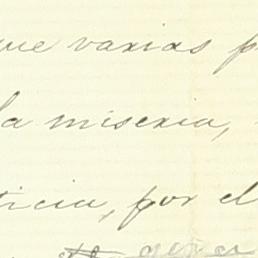 que varias p
la miseria,
ticia, por el